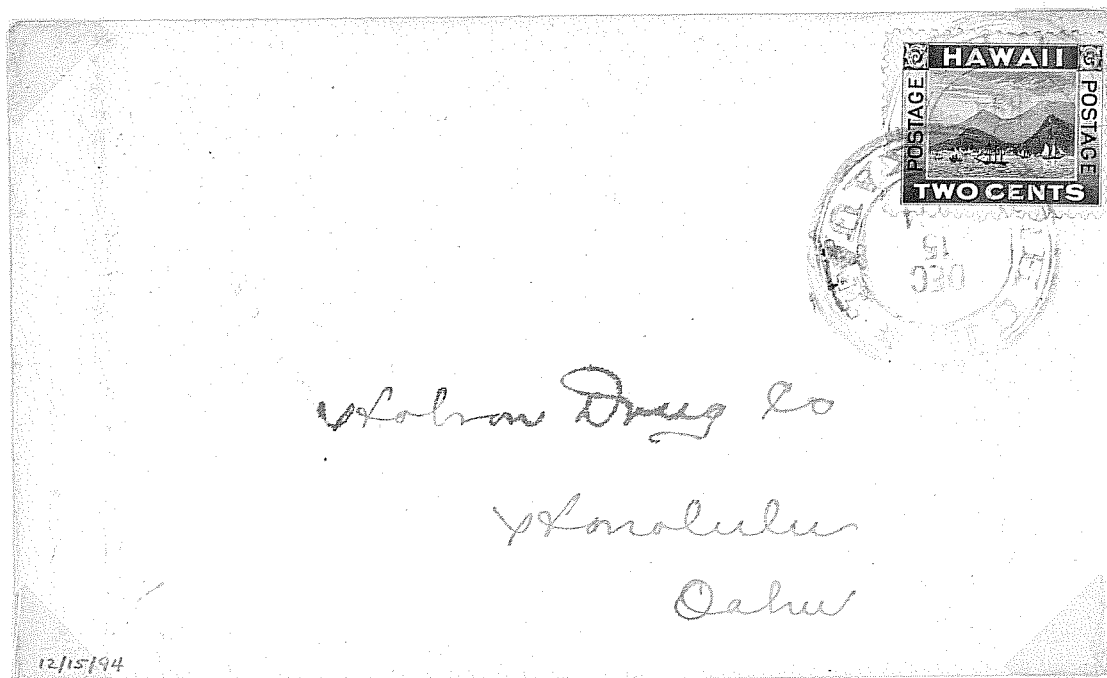 HAWAII
POSTAGE
POSTAGE
TWO CENTS
DEC
15
Hobron Drug Co
Honolulu
Oahu
12/15/94